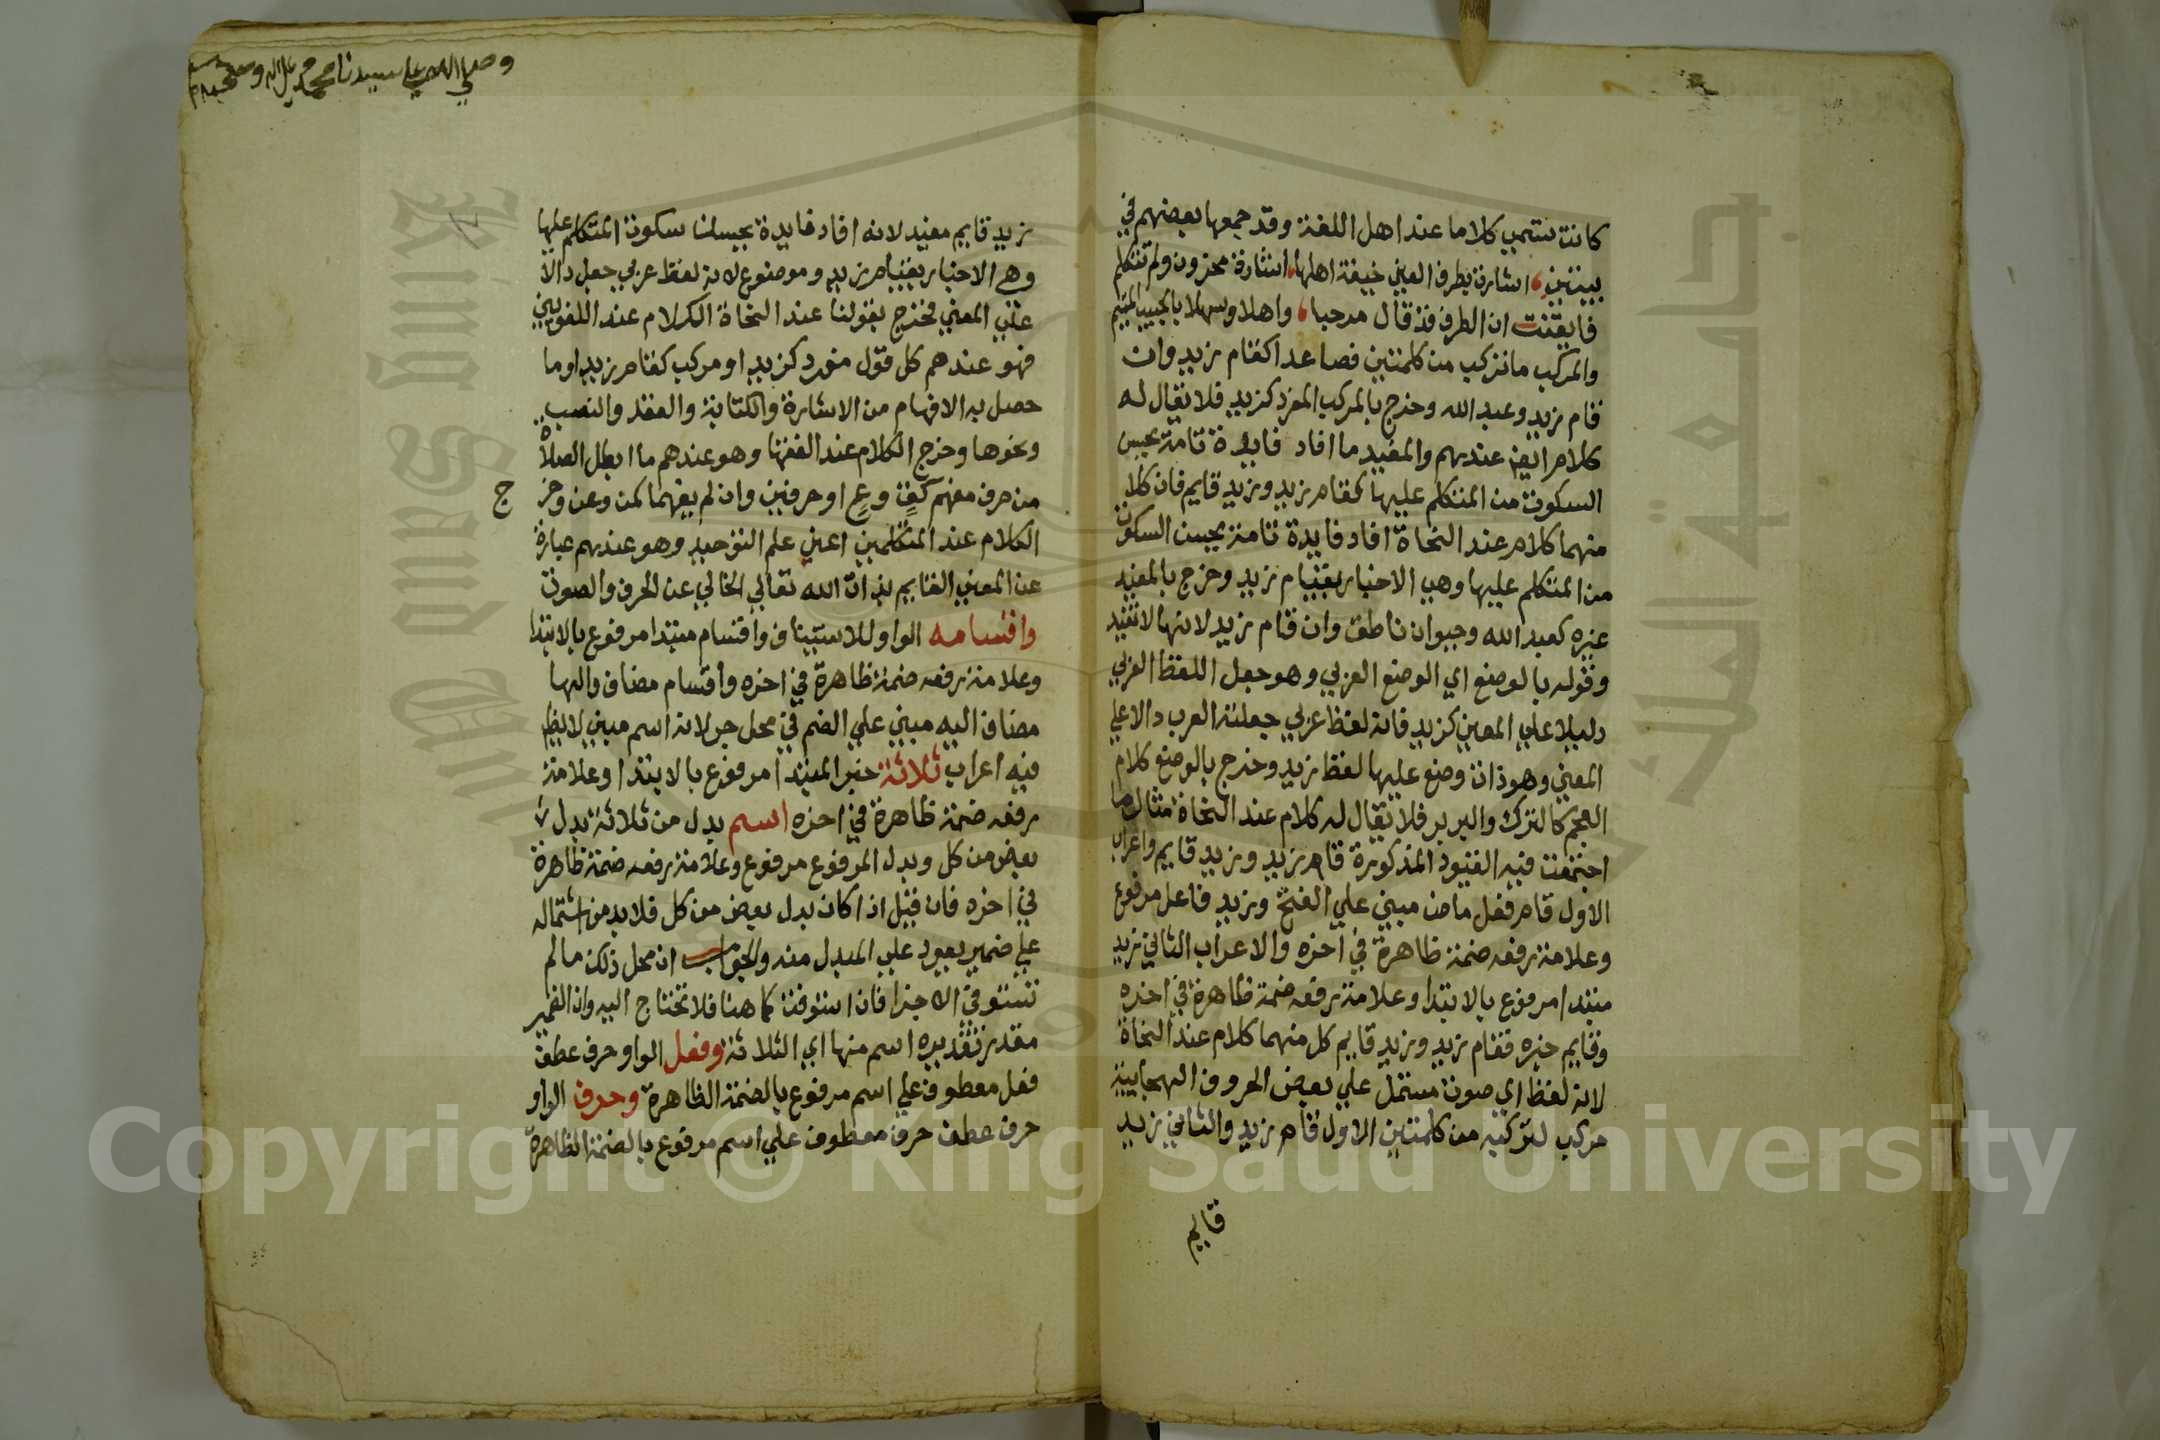 كانت تسمى كلاما عند اهل اللغة وقد جمعها بعضهم في
بيتين، اشارت بطرف العين خيفة اهلها، اشارة محزون ولم تتكلم
فايقنت ان الطرف قد قال مرحبا، واهلا وسهلا بالحبيب المتيم
والمركب ما تركب من كلمتين فصاعدا كقام زيد وان
قام زيد وعبد الله وخرج بالمركب المفرد كزيد فلا يقال له
كلام ايضا عندهم والمفيد ما افاد فايدة تامة يحسن
السكوت من المتكلم عليها كقام زيد وزيد قايم فان كلا
منهما كلام عند النحاة افاد فايدة تامة يحسن السكوت
من المتكلم عليها وهي الاخبار بقيام زيد وخرج بالمفيد
غيره كعبد الله وحيوان ناطق وان قام زيد لانها لا تفيد
وقوله بالوضع اي الوضع العربي وهو جعل اللفظ العربي
دليلا علي المعني كزيد فانه لفظ عربي جعلته العرب دالا علي
المعني وهو ذات وضع عليها لفظ زيد وخرج بالوضع كلام
العجم كالترك والبربر فلا يقال له كلام عند النحاة مثال ما
اجتمعت فيه القيود المذكورة قام زيد وزيد قايم واعراب
الاول قام فعل ماض مبني علي الفتح وزيد فاعل مرفوع
وعلامة رفعه ضمة ظاهرة في اخره والاعراب الثاني زيد
مبتدا مرفوع بالابتدا وعلامة رفعه ضمة ظاهرة في اخره
وقايم خبره فقام زيد وزيد قايم كل منهما كلام عند النحاة
لانه لفظ اي صوت مشتمل علي بعض الحروف الهجايية
مركب لتركبه من كلمتين الاول قام زيد والثاني زيد
قايم
وصلي الله علي سيدنا محمد وعلي اله
زيد قايم مفيد لانه افاد فايدة يحسن سكوت المتكلم عليها
وهي الاخبار بقيام زيد وموضوع لانه لفظ عربي جعل دالا
علي المعني فخرج بقولنا عند النحاة الكلام عند اللغويين
فهو عندهم كل قول مفرد كزيد او مركب كقام زيد او ما
حصل به الافهام من الاشارة والكتابة والعقد والنصب
ونحوها وخرج الكلام عند الفقها وهو عندهم ما ابطل الصلاة
من حرف مفهم كق وع او حرفين وان لم يفهما كمن وعن وخر
ج
الكلام عند المتكلمين اعني علم التوحيد وهو عندهم عبارة
عن المعني القايم بذات الله تعالي الخالي عن الحرف والصوت
واقسامه الواو للاستيناف واقسام مبتدا مرفوع بالابتدا
وعلامة رفعه ضمة ظاهرة في اخره واقسام مضاف والها
مضاف اليه مبني علي الضم في محل جر لانه اسم مبني لا يظهر
فيه اعراب ثلاثة خبر المبتدا مرفوع بالابتدا وعلامة
رفعه ضمة ظاهرة في اخره اسم بدل من ثلاثة بدل
بعض من كل وبدل المرفوع مرفوع وعلامة رفعه ضمة ظاهرة
في اخره فان قيل اذا كان بدل بعض من كل فلابد من اشتماله
علي ضمير يعود علي المبدل منه والجواب ان محل ذلك ما لم
تستوفي الاجزا فان استوفت كما هنا فلا تحتاج اليه وان الضمير
مقدر تقديره اسم منها اي الثلاثة وفعل الواو حرف عطف
فعل معطوف علي اسم مرفوع بالضمة الظاهرة وحرف الواو
حرف عطف حرف معطوف علي اسم مرفوع بالضمة الظاهرة
King Saud University
جامعة الملك
Copyright © King Saud University